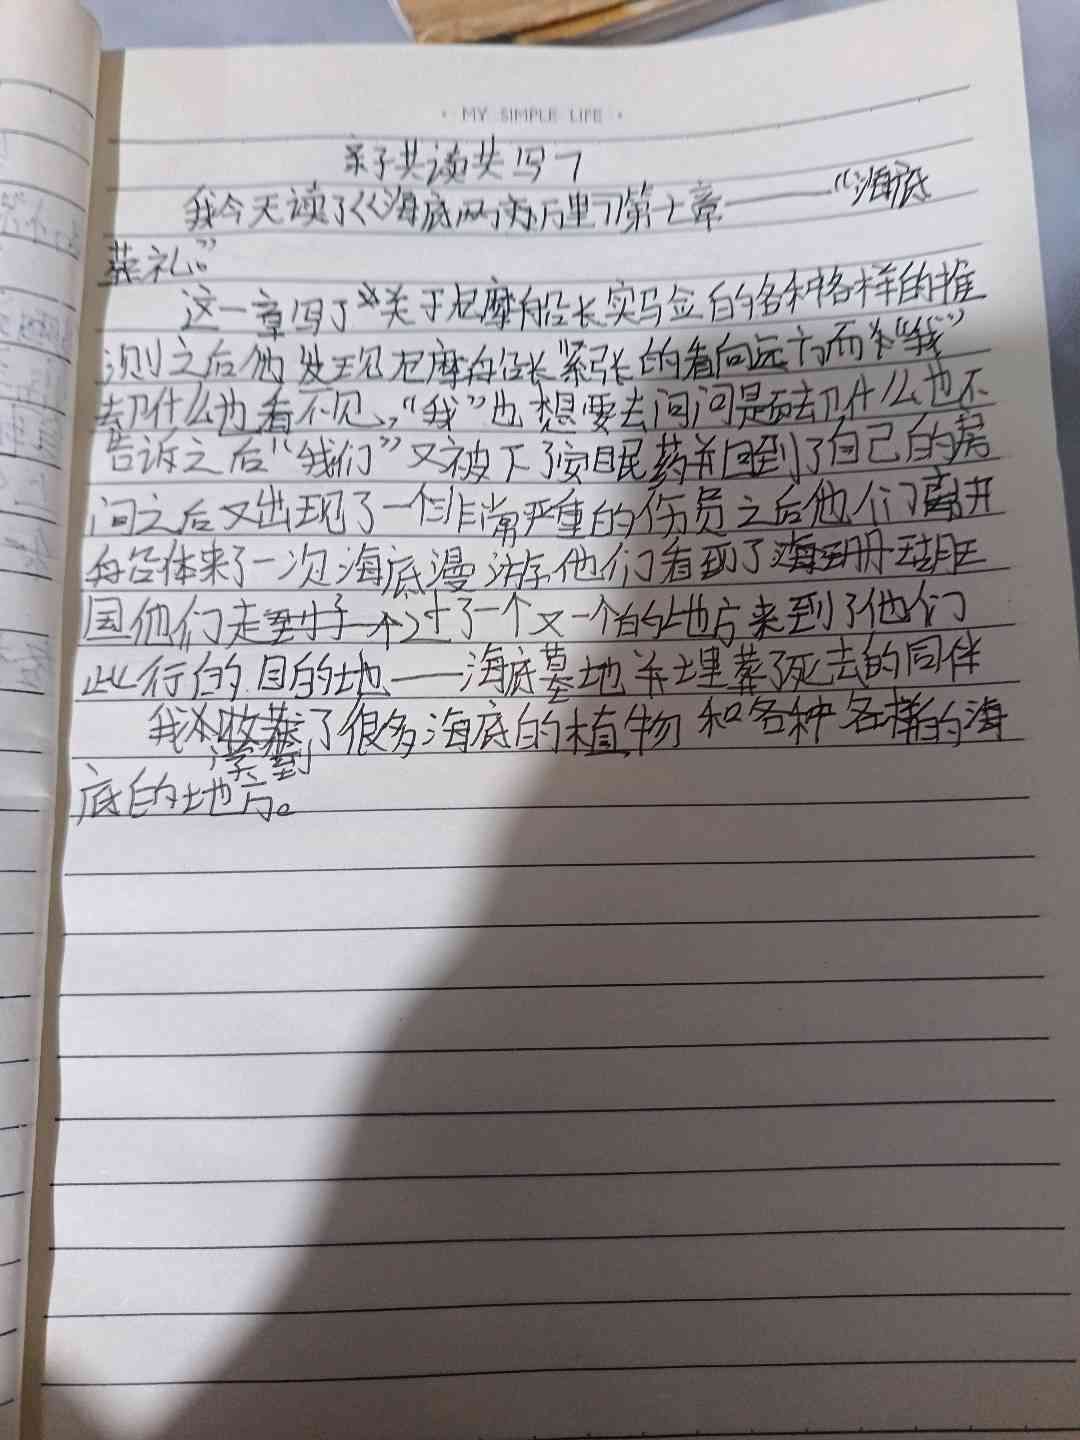 · MY SIMPLE LIFE ·
亲子共读共写7
我今天读了《海底两万里》第十章——“海底
葬礼。”
这一章写了关于尼摩船长实验的各种各样的推
测之后他发现尼摩船长紧张的看向远方而“我”
却什么也看不见,“我”也想要去问问是而却什么也不
告诉之后“我们”又被下了安眠药并回到了自己的房
间之后又出现了一个非常严重的伤员之后他们离开
船体来了一次海底漫游他们看到了珊瑚王
国他们走过了一个又一个的地方来到了他们
此行的目的地——海底墓地并埋葬了死去的同伴
我学到了很多海底的植物和各种各样的海
底的地方。